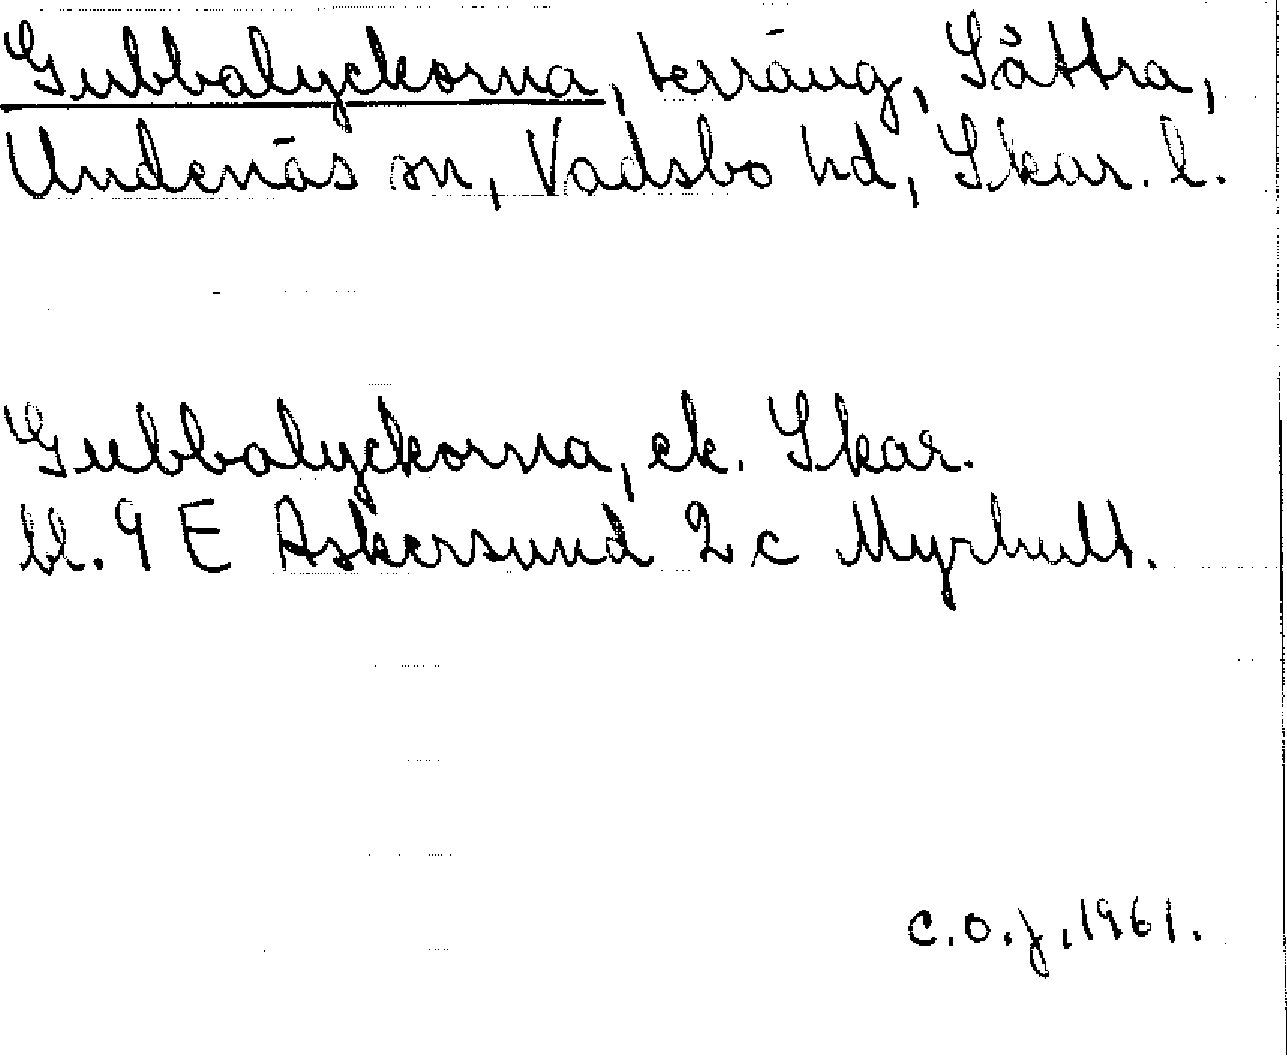 Gubbalyckorna, terräng, Såttra,
Undenäs sn, Vadsbo hd, Skar. l.
Gubbalyckorna, ek. Skar.
bl. 9 E Askersund 2 c Myrhult.
C.O.J., 1961.